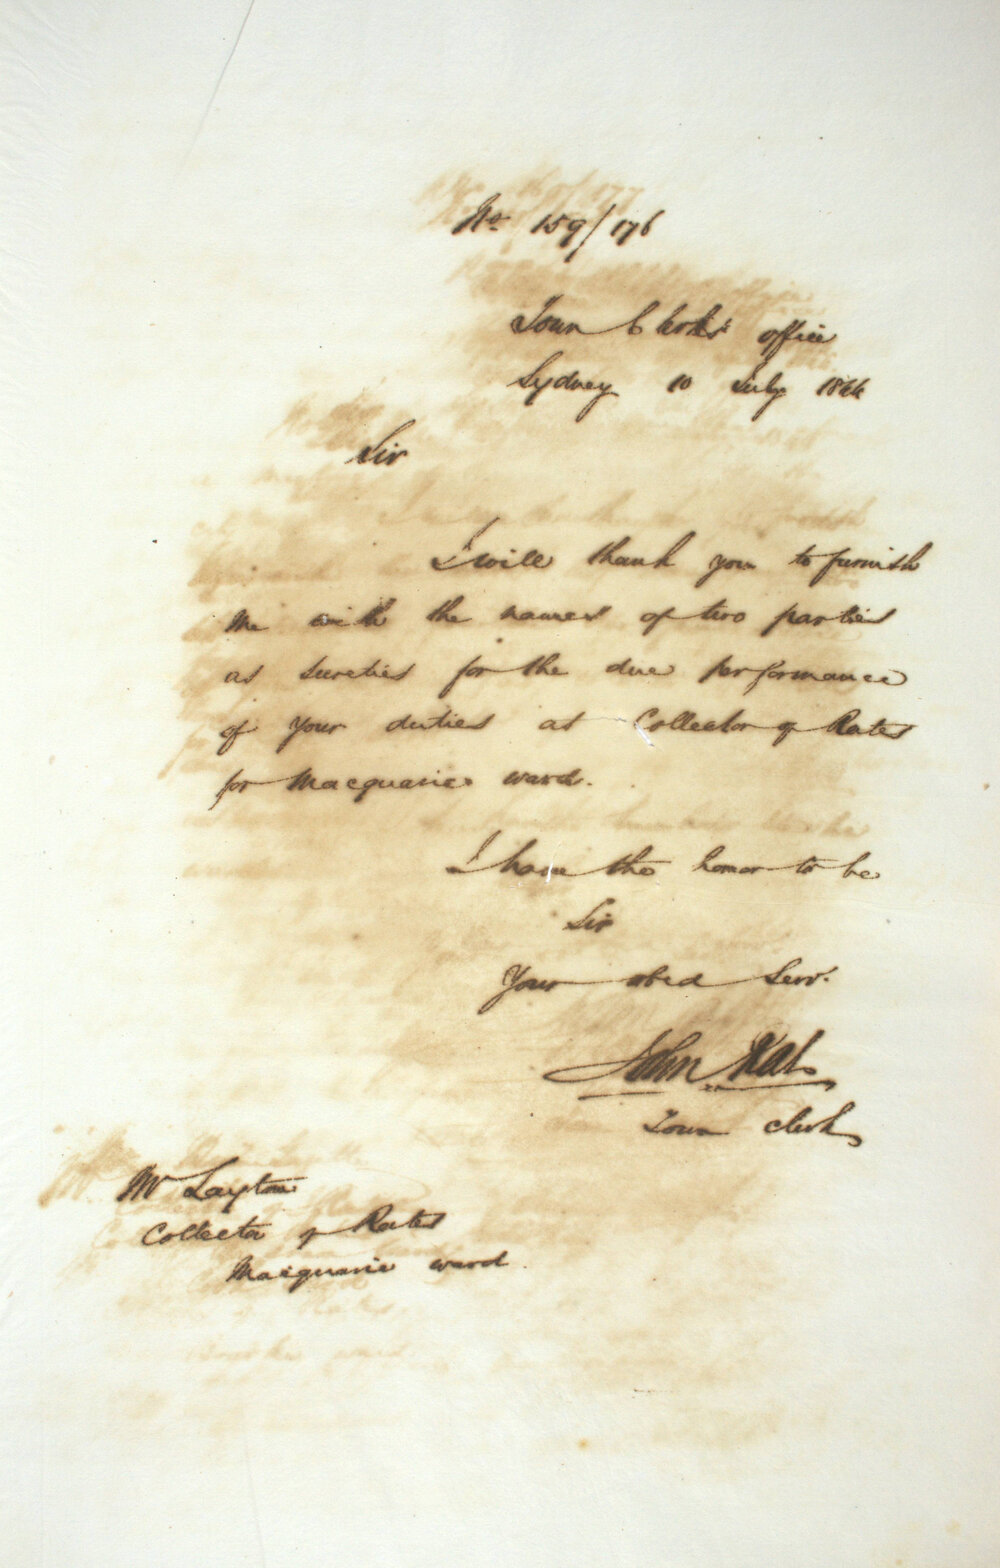 No 159/176
Town Clerk's office
Sydney 10 July 1844
Sir
I will thank you to furnish
me with the names of two parties
as sureties for the due performance
of your duties as Collector of Rates
for Macquarie ward.
I have the honor to be
Sir
Your obed Servt
John
Town Clerk
Mr Layton
Collector of Rates
Macquarie ward